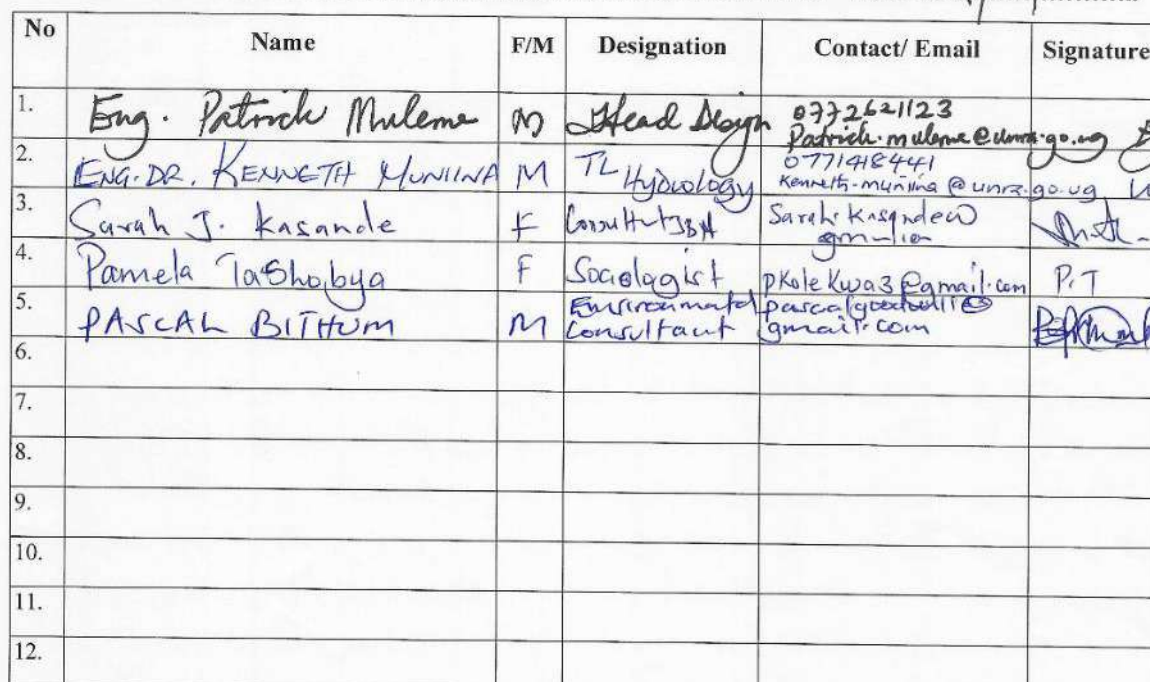 No Name F/M Designation Contact/ Email Signature
1. Eng. Patrick Muleme M Head Design 0772621123
Patrick.muleme@unra.go.ug
2. ENG. DR. KENNETH MUNIINA M TL Hydrology 0771418441
Kenneth.muniina@unra.go.ug
3. Sarah J. Kasande F
4. Pamela Tashobya F Sociologist pkolekwa3@gmail.com P.T
5. PASCAL BITHUM M Environmental
Consultant gmail.com
6.
7.
8.
9.
10.
11.
12.